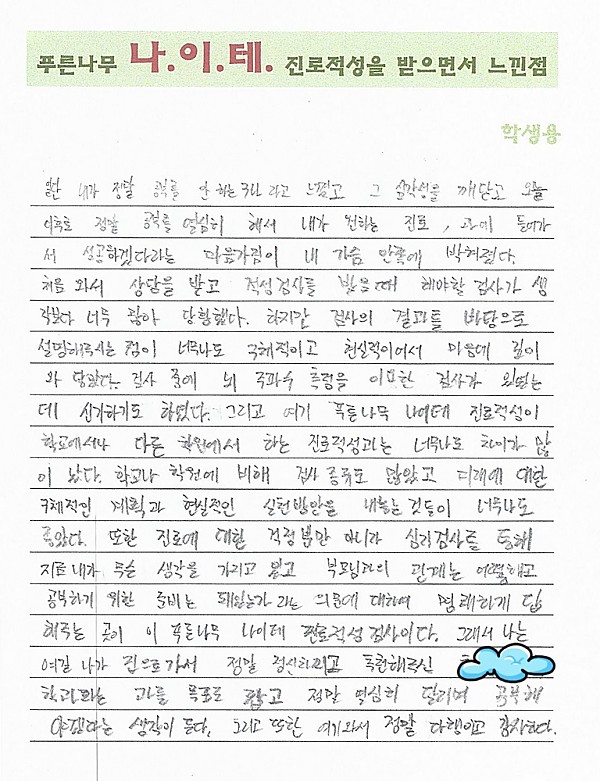 푸른나무 나.이.테. 진로적성을 받으면서 느낀점
학생용
일단 내가 정말 공부를 안 하는구나 라고 느꼈고 그 심각성을 깨닫고 오늘
이후로 정말 공부를 열심히 해서 내가 원하는 진로, 과에 들어가
서 성공하겠다라는 마음가짐이 내 가슴 안쪽에 박혀졌다.
처음 와서 상담을 받고 적성검사를 받을때 해야할 검사가 생
각보다 너무 많아 당황했다. 하지만 검사의 결과를 바탕으로
설명해주시는 점이 너무나도 구체적이고 현실적이어서 마음에 깊이
와 닿았다. 검사 중에 뇌 주파수 측정을 이용한 검사가 있었는
데 신기하기도 하였다. 그리고 여기 푸른나무 나이테 진로적성이
학교에서나 다른 학원에서 하는 진로적성과는 너무나도 차이가 많
이 났다. 학교나 학원에 비해 검사 종류도 많았고 미래에 대한
구체적인 계획과 현실적인 실천방안을 내놓는 것들이 너무나도
좋았다. 또한 진로에 대한 적성뿐만 아니라 심리검사를 통해
지금 내가 무슨 생각을 가지고 있고 부모님과의 관계는 어떻하고
공부하기 위한 준비는 돼있는가 라는 의문에 대하여 명쾌하게 답
해주는 곳이 이 푸른나무 나이테 진로적성검사이다. 그래서 나는
여길 나가 집으로 가서 정말 정신차리고 추천해주신
학과라는 과를 목표로 잡고 정말 열심히 달리며 공부해
야겠다는 생각이 든다. 그리고 또한 여기와서 정말 다행이고 감사하다.